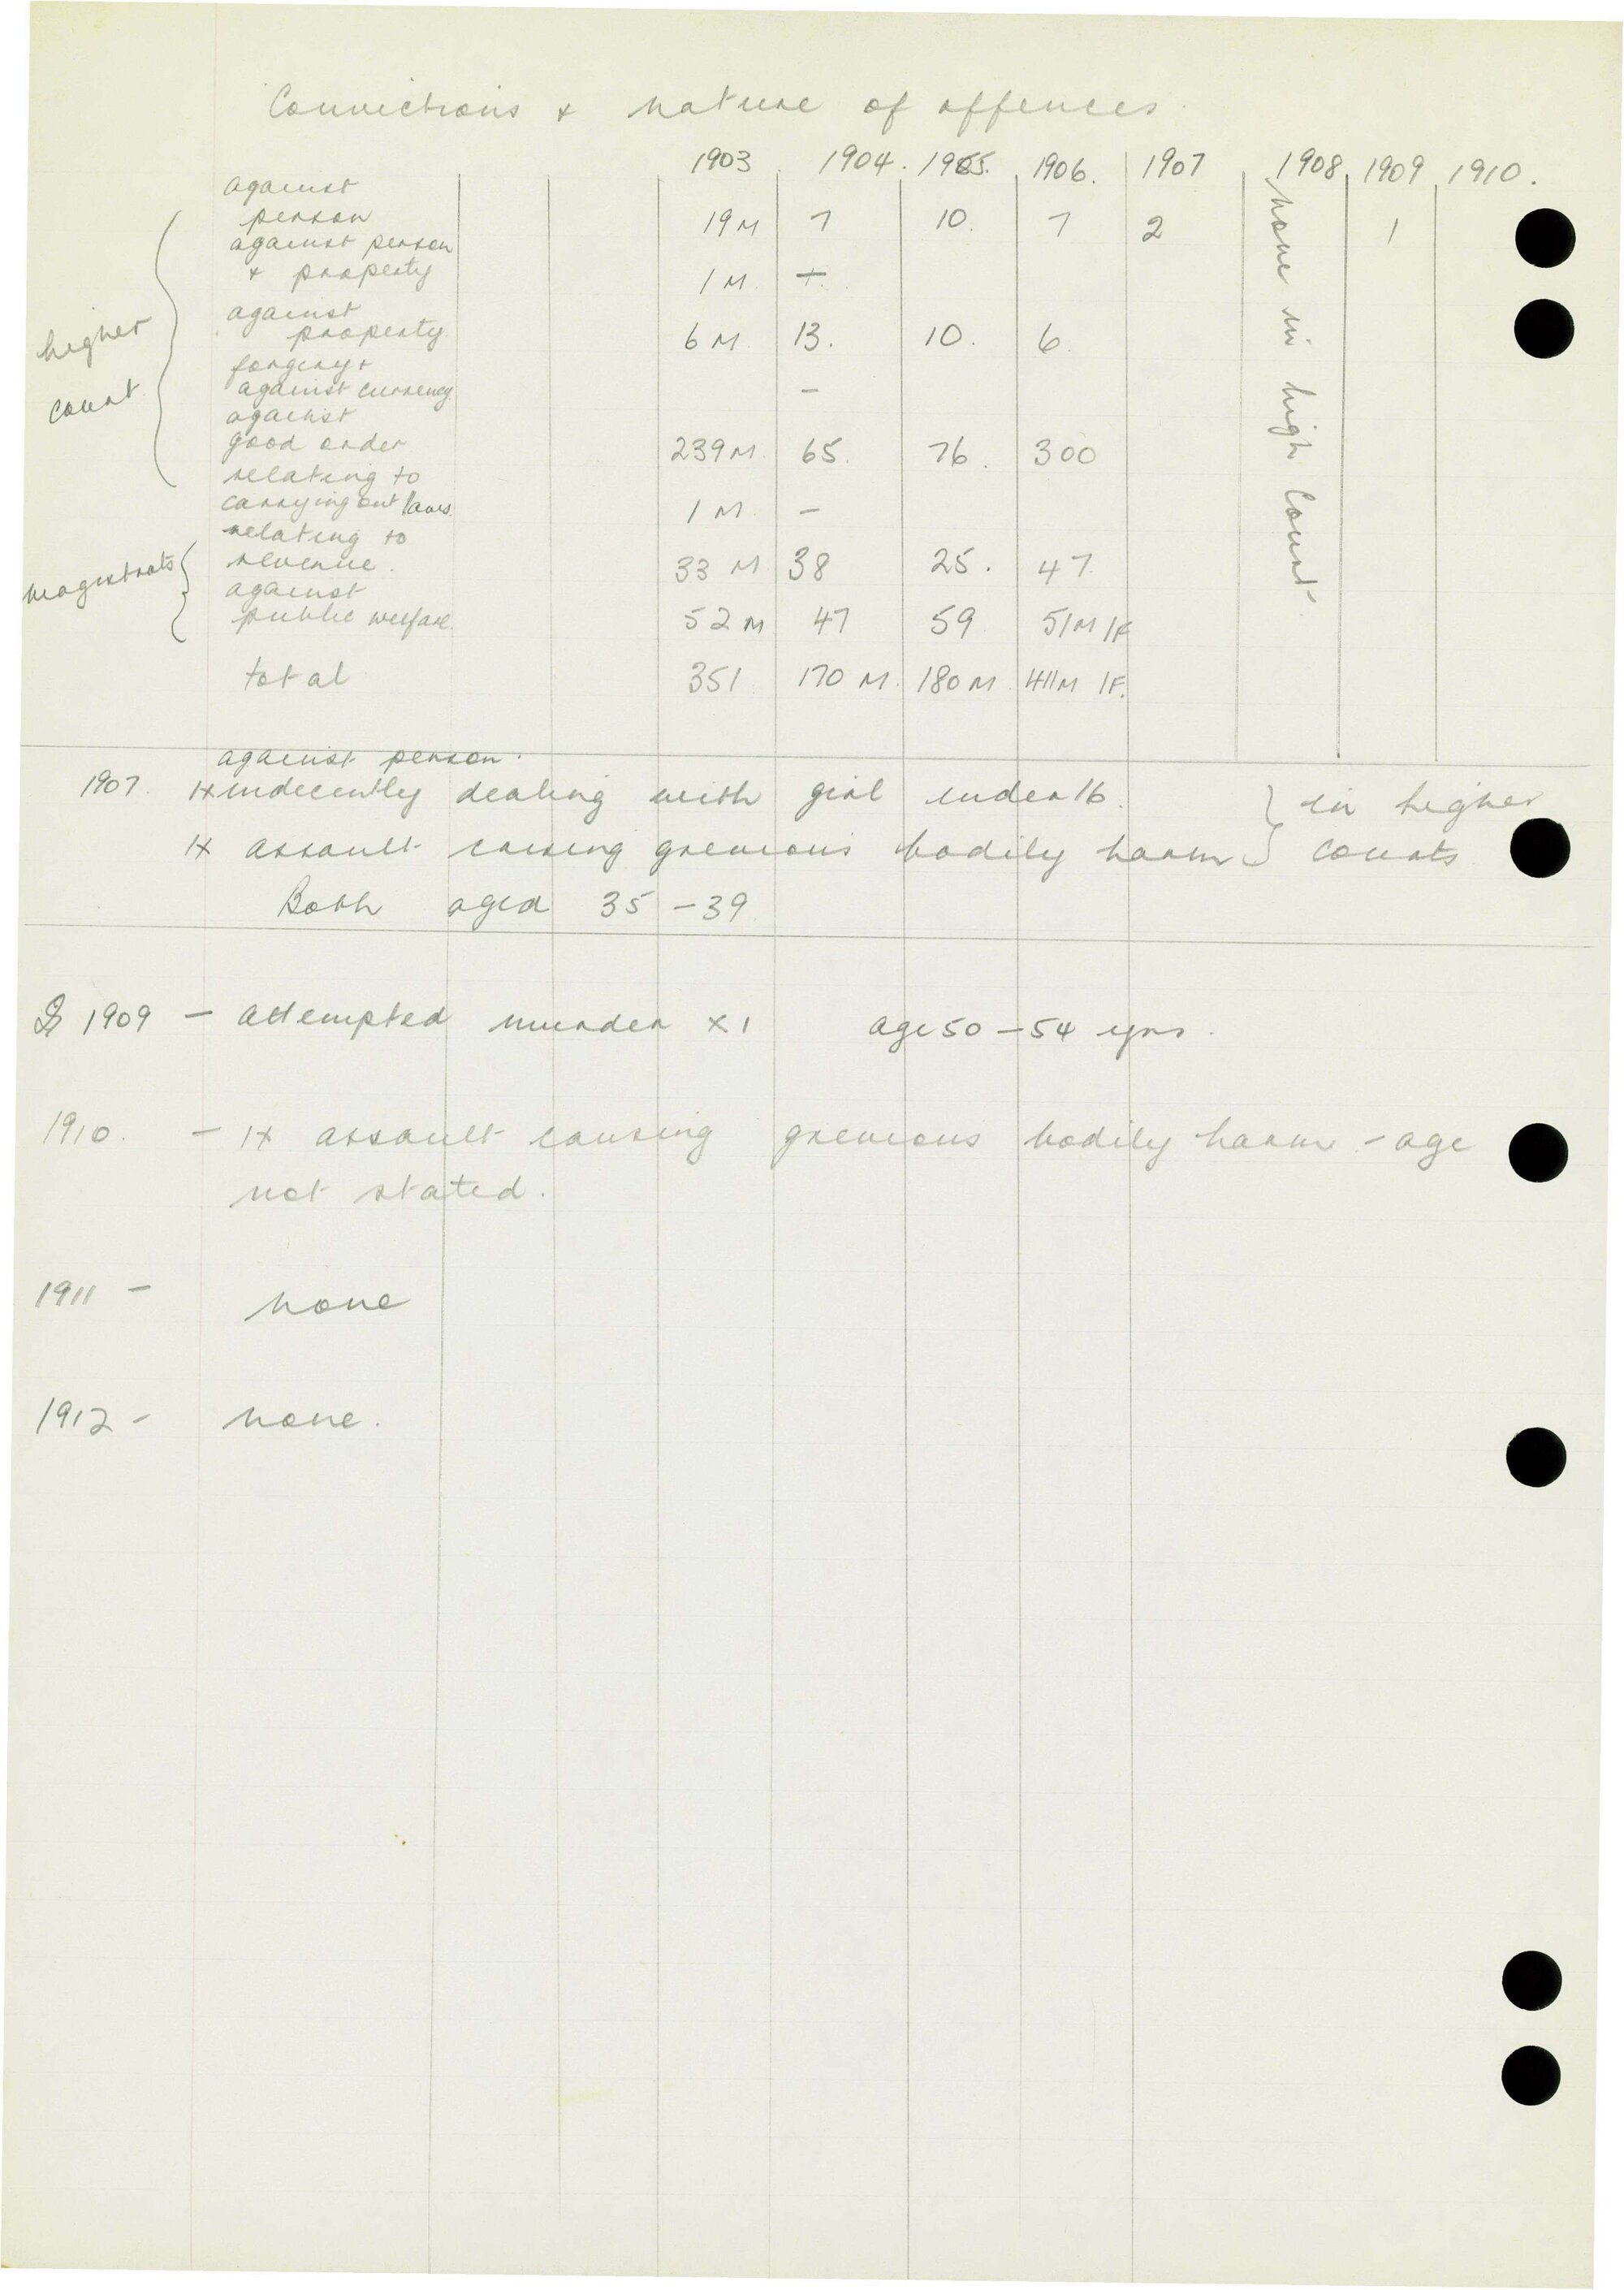 Convictions & nature of offences.
1903 1904. 1905. 1906. 1907 1908 1909 1910.
against
person 19M 7 10. 7 2 1
against person
& property 1M
higher
court
against
property 6M 13. 10. 6
forgery &
against currency –
against
good order 239M. 65. 76. 300
relating to
carrying out laws. 1M –
magistrats
relating to
revenue. 33 M 38 25. 47
against
public welfare. 52 M 47 59 51M 1F
total 351 170 M. 180 M 411M 1F.
none in high Court.
against person.
1907. 1x indecently dealing with girl under 16. } in higher
1x assault causing grevious bodily harm } courts
Both aged 35 – 39
1909 – attempted murder x 1 age 50 – 54 yrs.
1910. – 1x assault causing grevious bodily harm – age
not stated.
1911 – none
1912 – none.